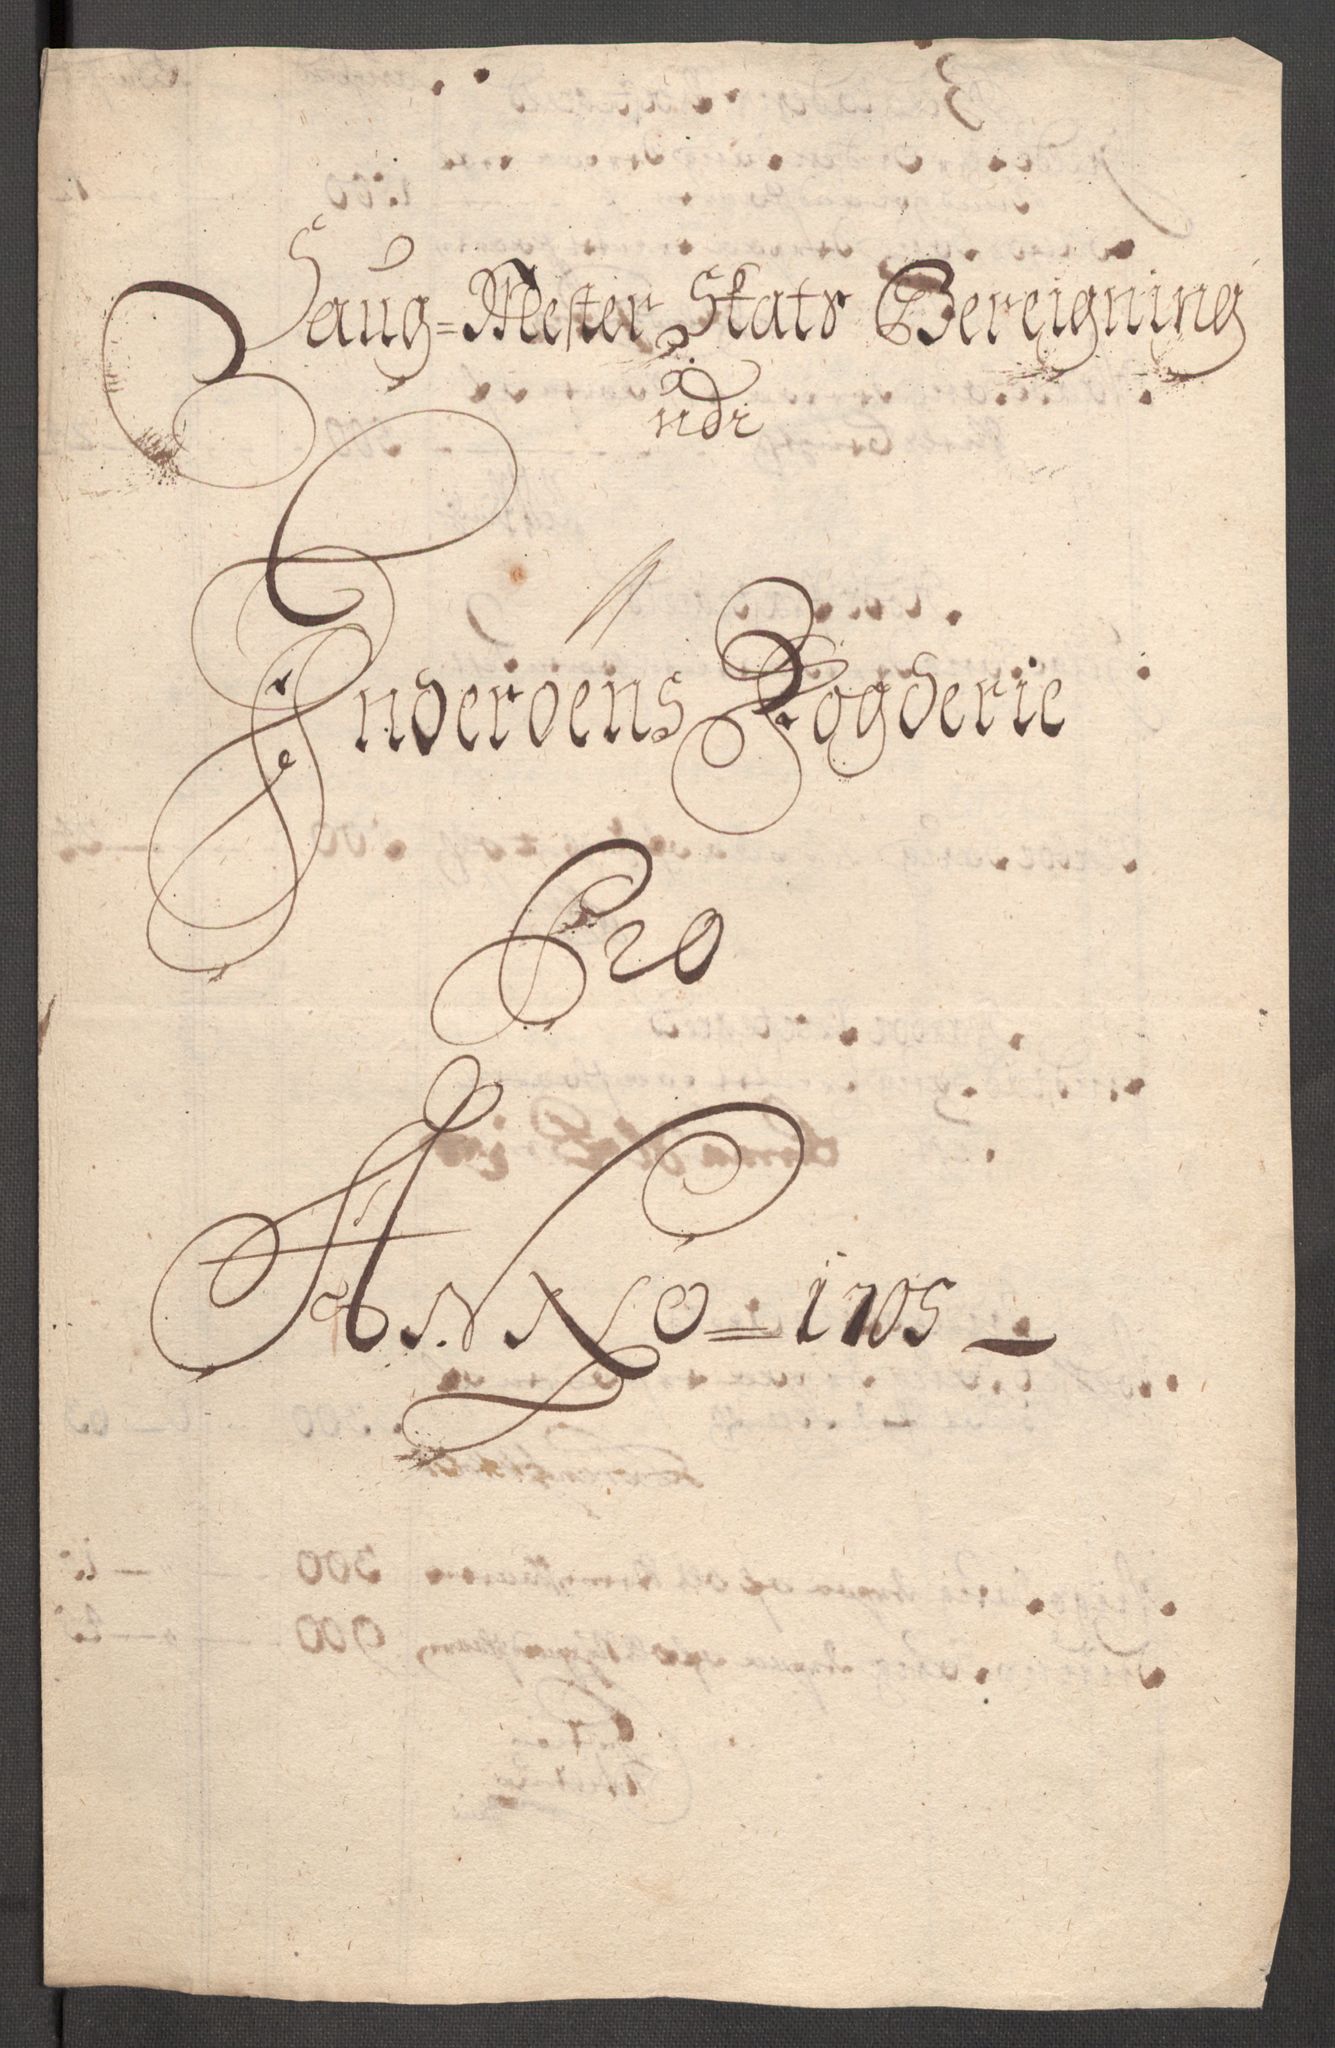 Saug-Mester Skats Bereigning
udi
Inderøens Fogderie
Pro
ANNO = 1705 -